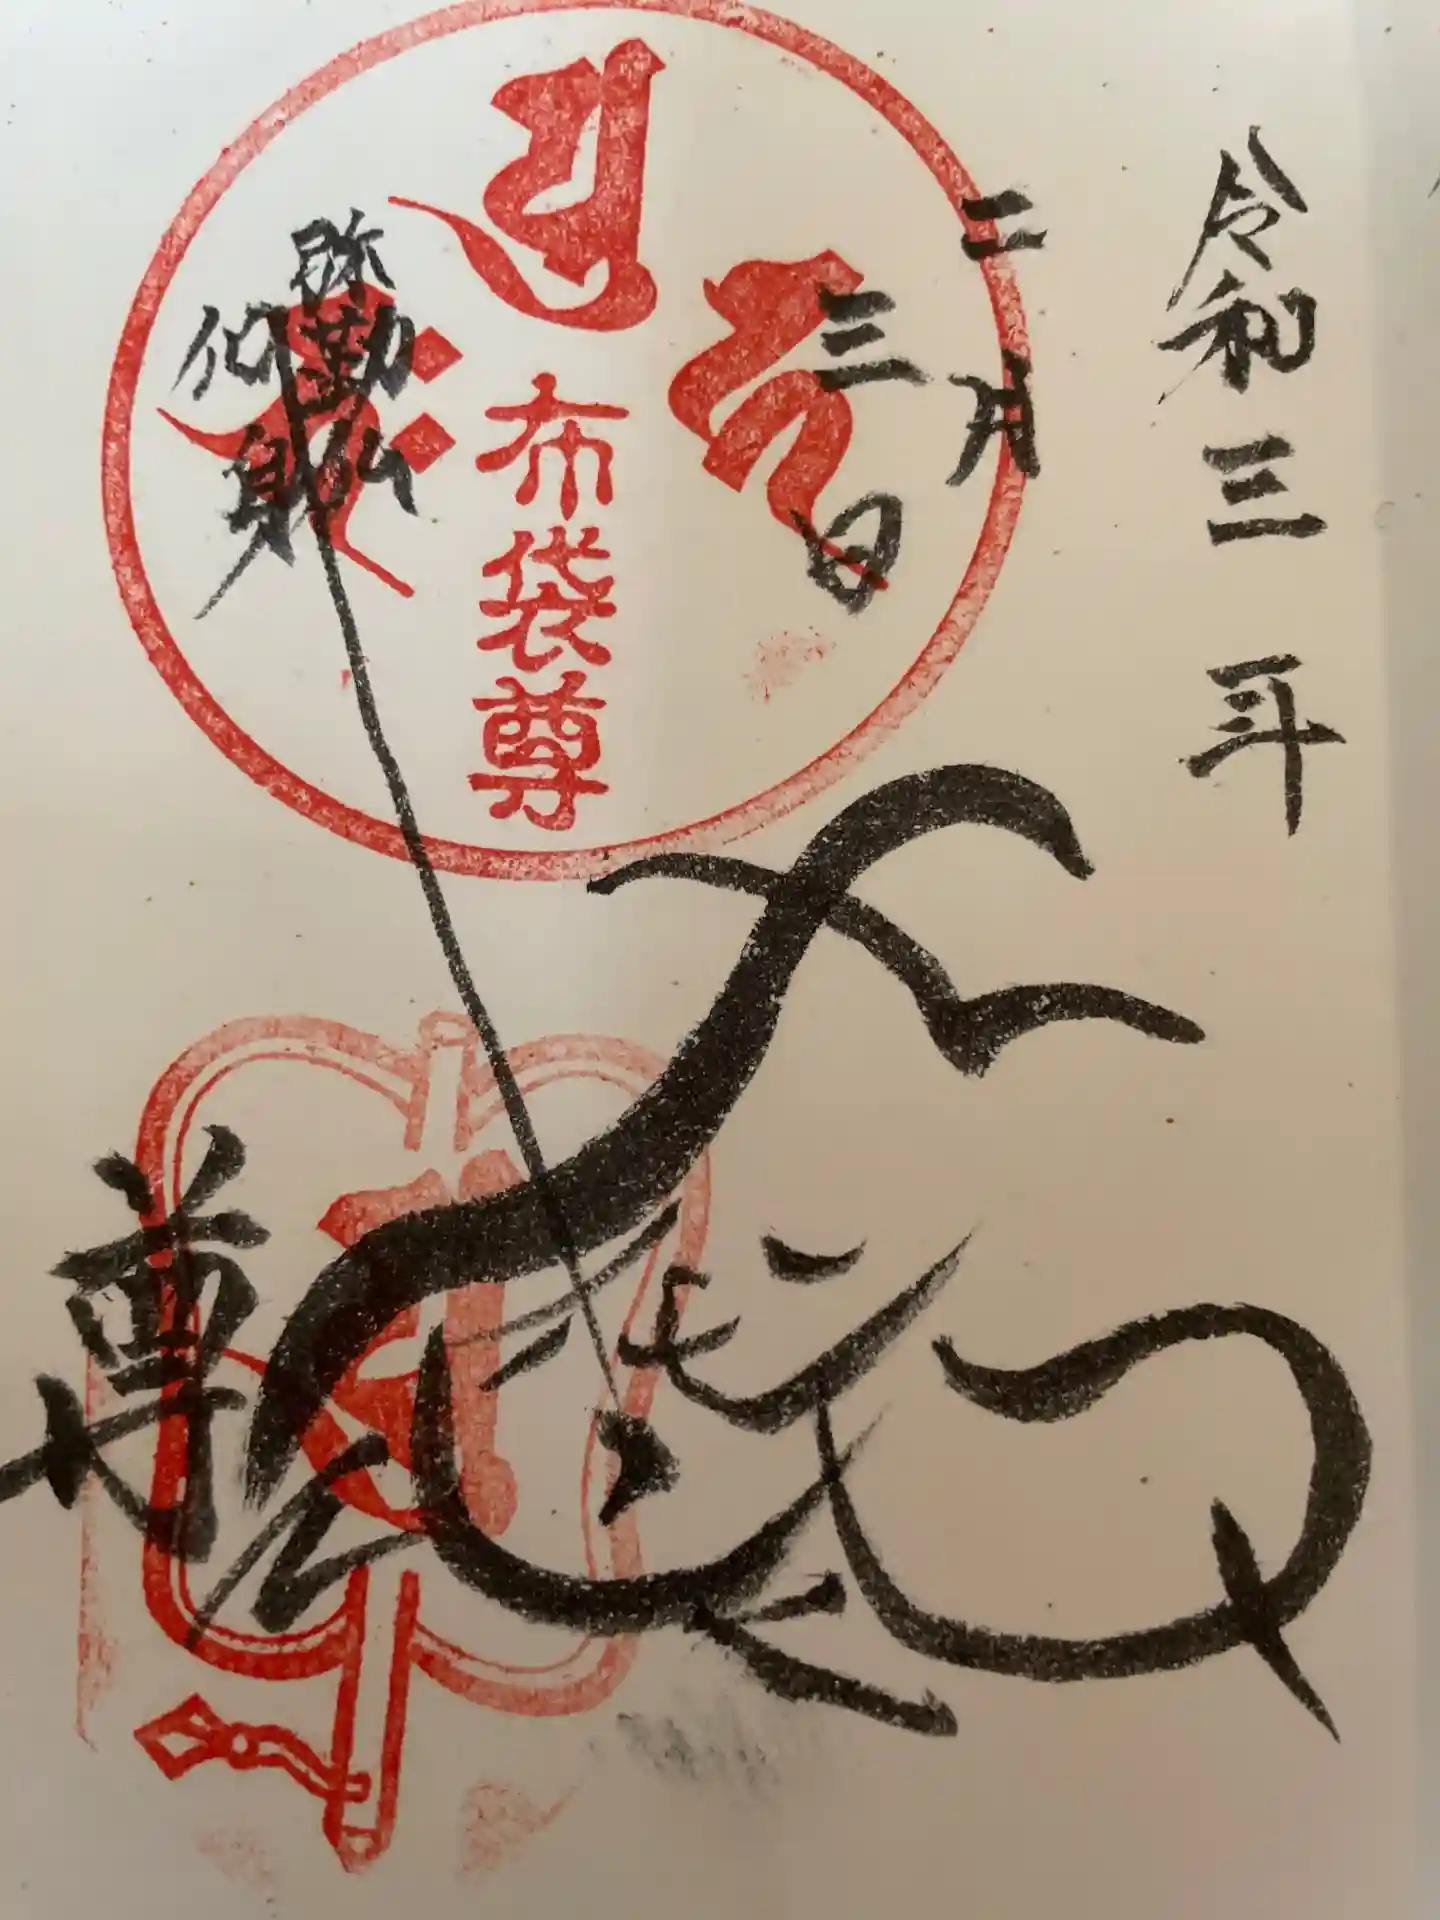 令和三年
二月
三日
布袋尊
弥勒仏
化身
尊